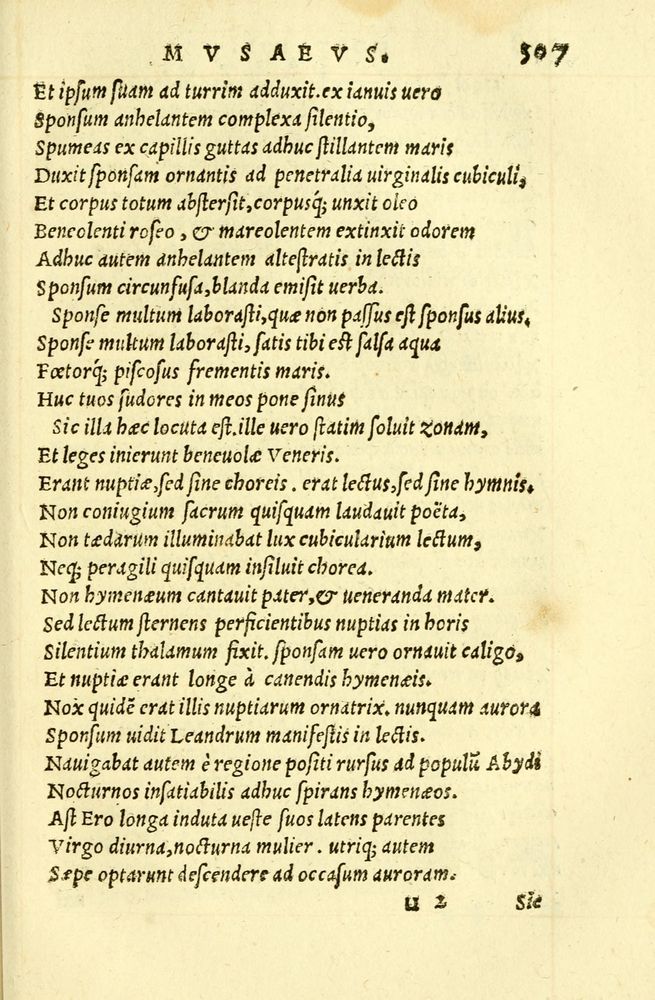 MVSAEVS. 507
Et ipsum suam ad turrim adduxit. ex ianuis uero
Sponsum anhelantem complexa silentio,
Spumeas ex capillis guttas adhuc stillantem maris
Duxit sponsam ornantis ad penetralia uirginalis cubiculi,
Et corpus totum abstersit, corpusq́; unxit oleo
Beneolenti roseo, & mareolentem extinxit odorem
Adhuc autem anhelantem altestratis in lectis
Sponsum circunfusa, blanda emisit uerba.
Sponse multum laborasti, quæ non passus est sponsus alius,
Sponse multum laborasti, satis tibi est salsa aqua
Fœtorq́; piscosus frementis maris.
Huc tuos sudores in meos pone sinus
Sic illa hæc locuta est. ille uero statim soluit zonam,
Et leges inierunt beneuolæ Veneris.
Erant nuptiæ, sed sine choreis. erat lectus, sed sine hymnis.
Non coniugium sacrum quisquam laudauit poëta,
Non tædarum illuminabat lux cubicularium lectum,
Neq; peragili quisquam insiluit chorea.
Non hymenæum cantauit pater, & ueneranda mater.
Sed lectum sternens perficientibus nuptias in horis
Silentium thalamum fixit. sponsam uero ornauit caligo,
Et nuptiæ erant longe à canendis hymenæis.
Nox quidē erat illis nuptiarum ornatrix. nunquam aurora
Sponsum uidit Leandrum manifestis in lectis.
Nauigabat autem è regione positi rursus ad populū Abydi
Nocturnos insatiabilis adhuc spirans hymenæos.
Ast Ero longa induta ueste suos latens parentes
Virgo diurna, nocturna mulier. utriq; autem
Sæpe optarunt descendere ad occasum auroram.
u 2 Sic